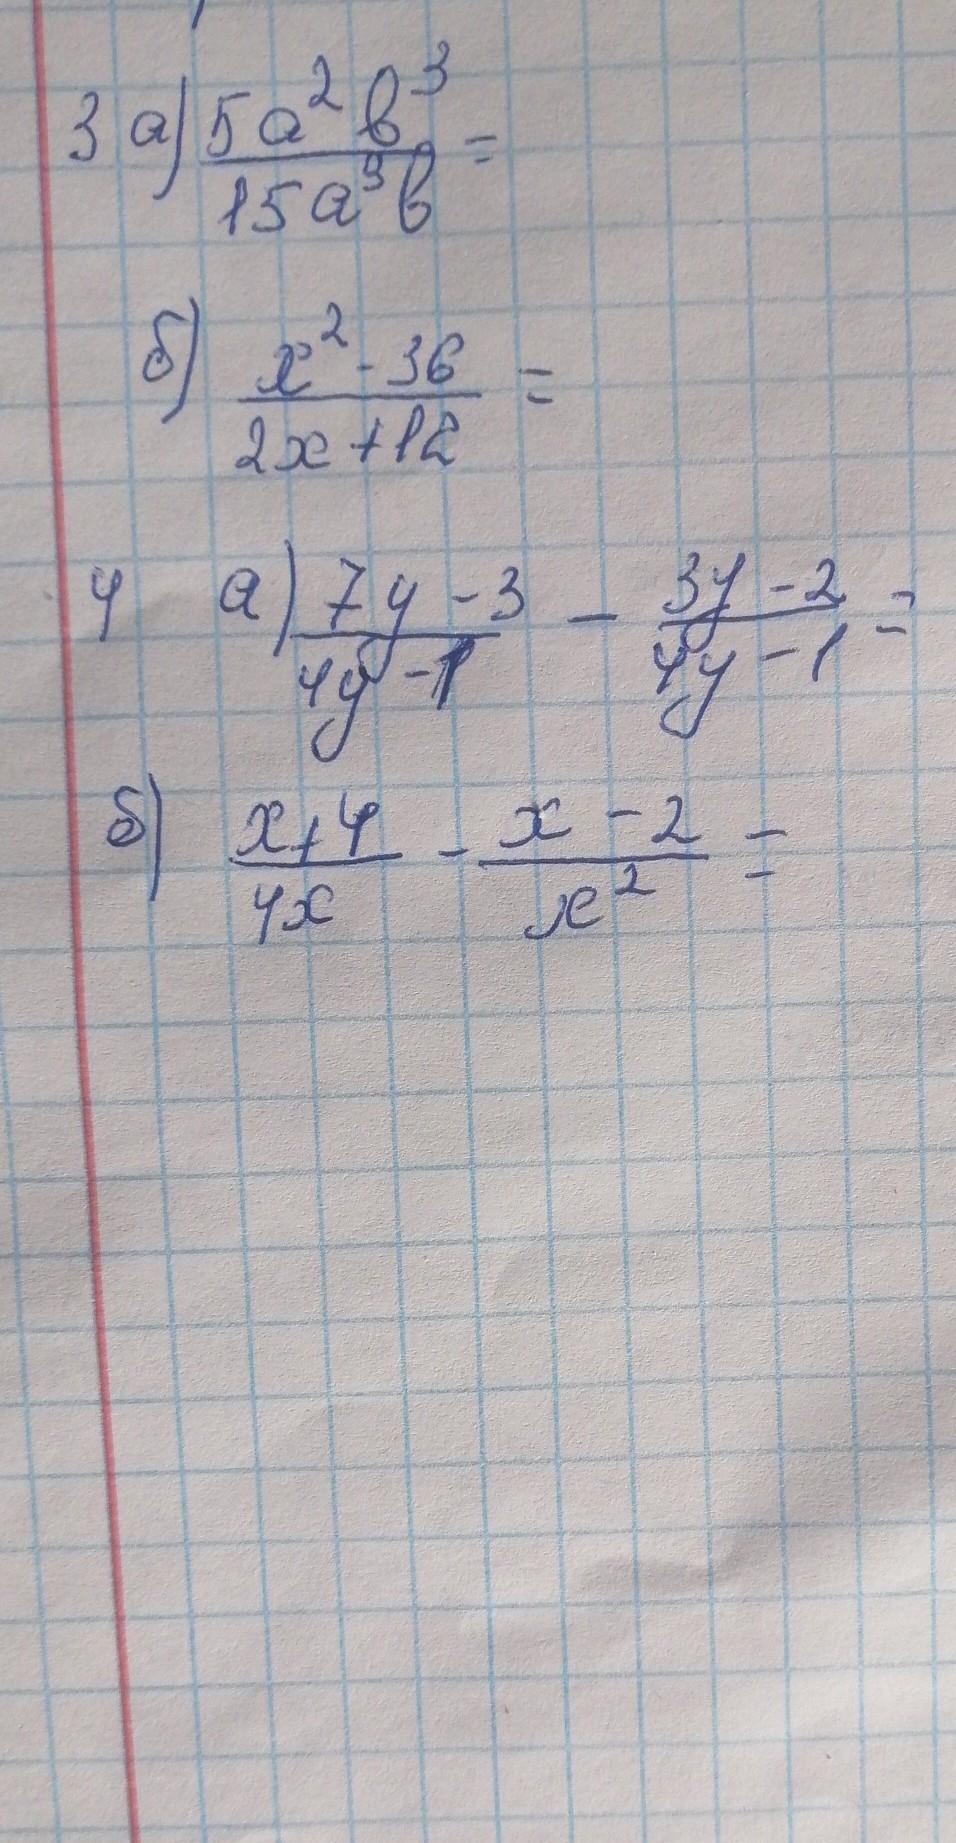 3 а) 5a² b³ =
15a³b
б) x² - 36 =
2x+12
4 а) 7y - 3 - 3y - 2 =
4y - 1 4y - 1
б) x+4 - x - 2 =
4x x²